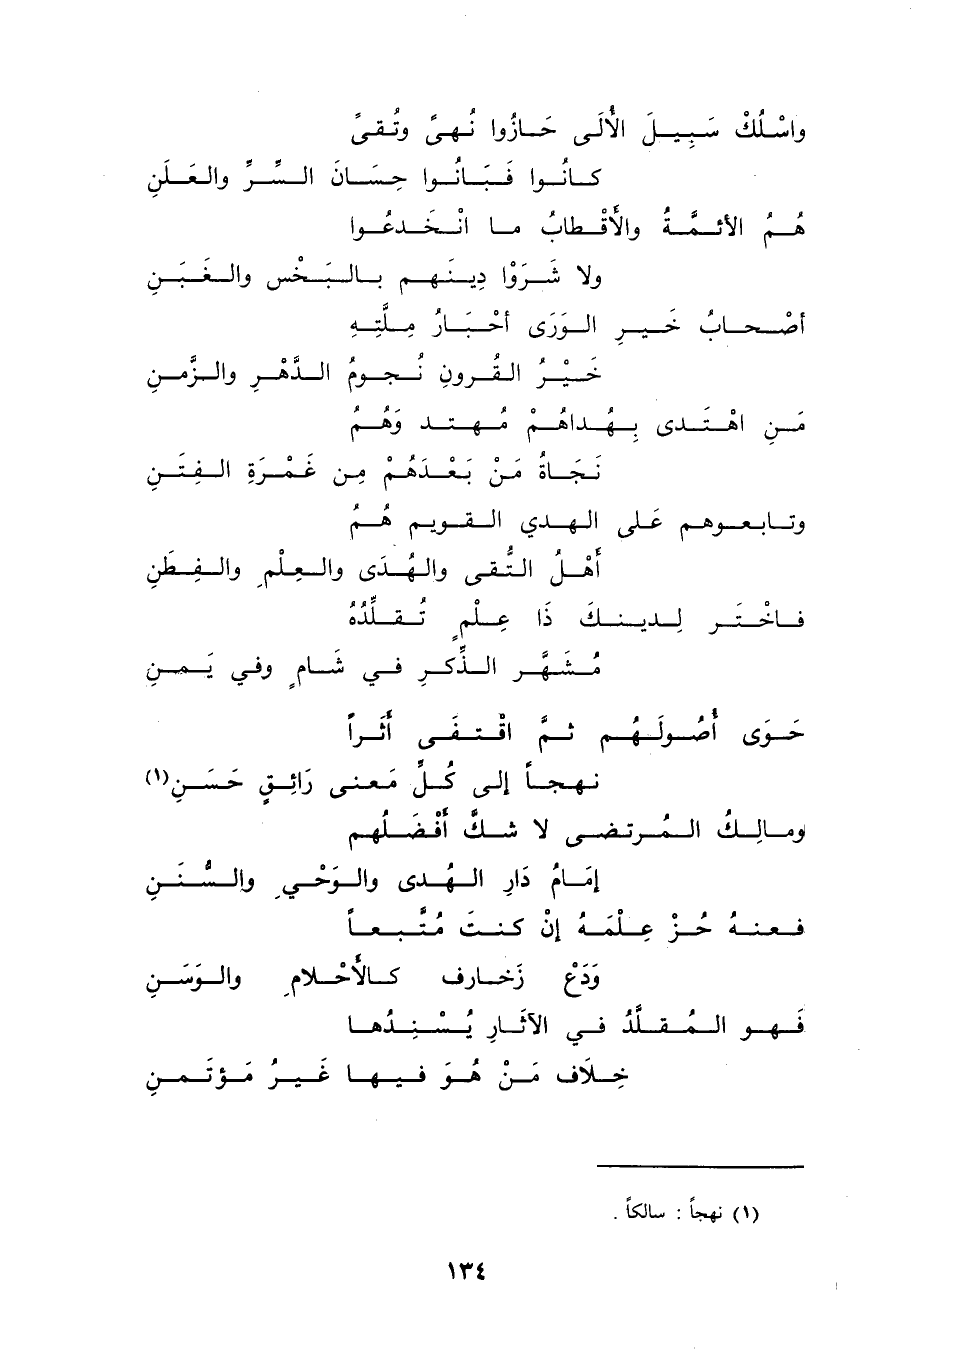 واسْلُكْ سَبِيلَ الأُلَى حَازُوا نُهىً وتُقىً
كانُوا فَبَانُوا حِسَانَ السِّرِّ والعَلَنِ
هُمُ الأئمَّةُ والأَقْطابُ ما انْخَدعُوا
ولا شَرَوْا دِينَهم بالبَخْسِ والغَبَنِ
أصْحابُ خَيرِ الوَرَى أحْبَارُ مِلَّتِهِ
خَيْرُ القُرونِ نُجومُ الدَّهْرِ والزَّمنِ
مَنِ اهْتَدى بِهُداهُمْ مُهتد وَهُمُ
نَجَاةُ مَنْ بَعْدَهُمْ مِن غَمْرَةِ الفِتَنِ
وتابعوهم عَلى الهدي القويم هُمُ
أَهْلُ التُّقى والهُدَى والعِلْمِ والفِطَنِ
فاخْتَر لِدينكَ ذَا عِلْمٍ تُقلِّدُهُ
مُشَهَّرِ الذِّكرِ في شَامٍ وفي يَمنِ
حَوَى أُصُولَهُم ثمَّ اقْتفَى أَثَراً
نهجاً إلى كُلِّ مَعنى رَائِقٍ حَسَنِ(١)
ومالِكُ المُرتضى لا شكَّ أَفْضَلُهم
إمَامُ دَارِ الهُدى والوَحْيِ والسُّنَنِ
فعنهُ حُزْ عِلْمَهُ إنْ كنتَ مُتَّبعاً
وَدَعْ زَخارف كالأَحْلامِ والوَسَنِ
فَهو المُقلَّدُ في الآثَارِ يُسْنِدُها
خِلَاف مَنْ هُوَ فيها غَيرُ مَؤتَمنِ
(١) نهجاً : سالكاً .
١٣٤